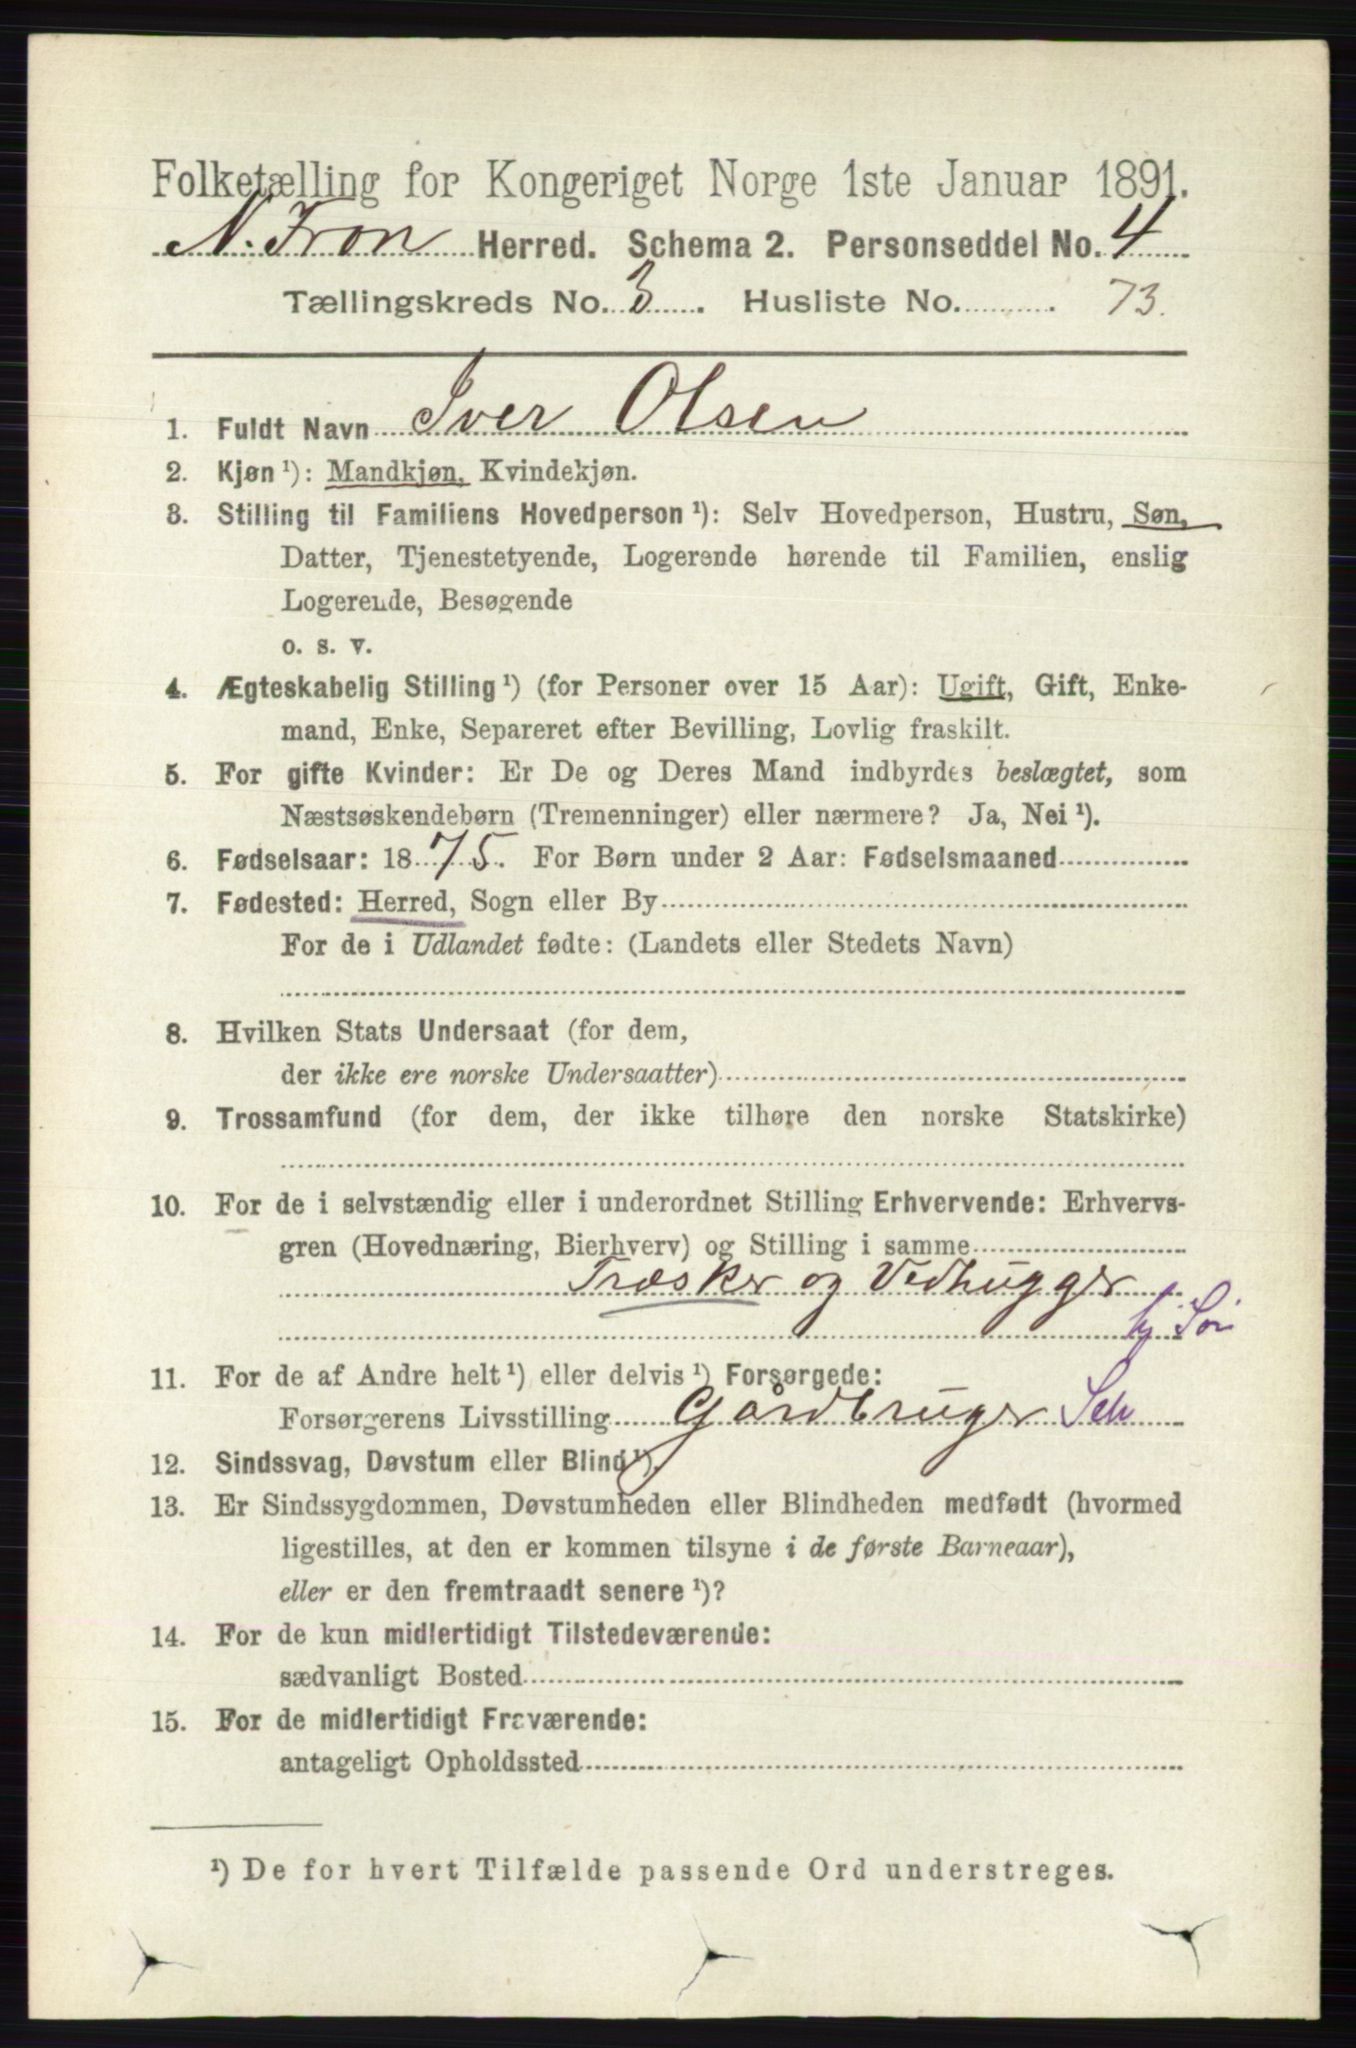 Folketælling for Kongeriget Norge 1ste Januar 1891.
N. Fron Herred. Schema 2. Personseddel No. 4
Tællingskreds No. 3. Husliste No. 73.
1. Fuldt Navn Iver Olsen
2. Kjøn ¹): Mandkjøn, Kvindekjøn.
3. Stilling til Familiens Hovedperson ¹): Selv Hovedperson, Hustru, Søn,
Datter, Tjenestetyende, Logerende hørende til Familien, enslig
Logerende, Besøgende
o. s. v.
4. Ægteskabelig Stilling ¹) (for Personer over 15 Aar): Ugift, Gift, Enke-
mand, Enke, Separeret efter Bevilling, Lovlig fraskilt.
5. For gifte Kvinder: Er De og Deres Mand indbyrdes beslægtet, som
Næstsøskendebørn (Tremenninger) eller nærmere? Ja, Nei ¹).
6. Fødselsaar: 1875. For Børn under 2 Aar: Fødselsmaaned
7. Fødested: Herred, Sogn eller By
For de i Udlandet fødte: (Landets eller Stedets Navn)
8. Hvilken Stats Undersaat (for dem,
der ikke ere norske Undersaatter)
9. Trossamfund (for dem, der ikke tilhøre den norske Statskirke)
10. For de i selvstændig eller i underordnet Stilling Erhvervende: Erhvervs-
gren (Hovednæring, Bierhverv) og Stilling i samme
Træsker og Vedhugger
11. For de af Andre helt ¹) eller delvis ¹) Forsørgede:
Forsørgerens Livsstilling Gårdbruger Selv
12. Sindssvag, Døvstum eller Blind ¹).
13. Er Sindssygdommen, Døvstumheden eller Blindheden medfødt (hvormed
ligestilles, at den er kommen tilsyne i de første Barneaar),
eller er den fremtraadt senere ¹)?
14. For de kun midlertidigt Tilstedeværende:
sædvanligt Bosted
15. For de midlertidigt Fraværende:
antageligt Opholdssted
¹) De for hvert Tilfælde passende Ord understreges.